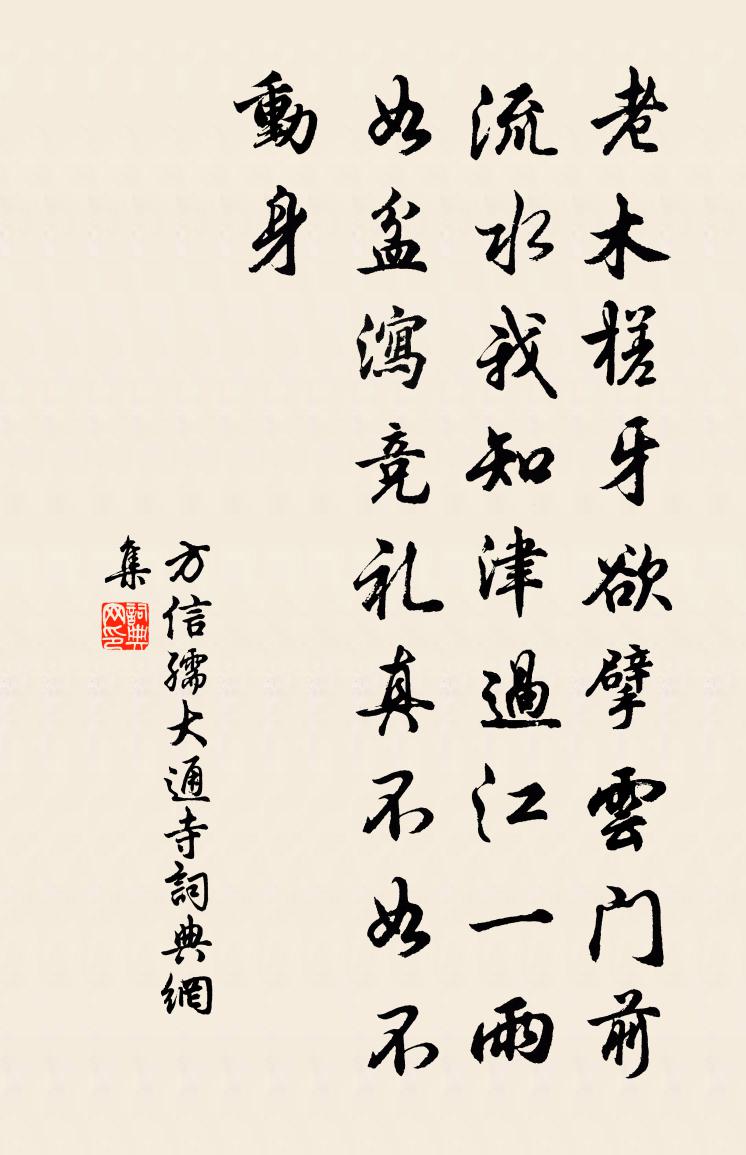 老木槎牙欲擘雲门前
流水我知津過江一雨
如盆瀉竞礼真不如不
動身
方信孺大通寺詞典網
集
詞典
网印